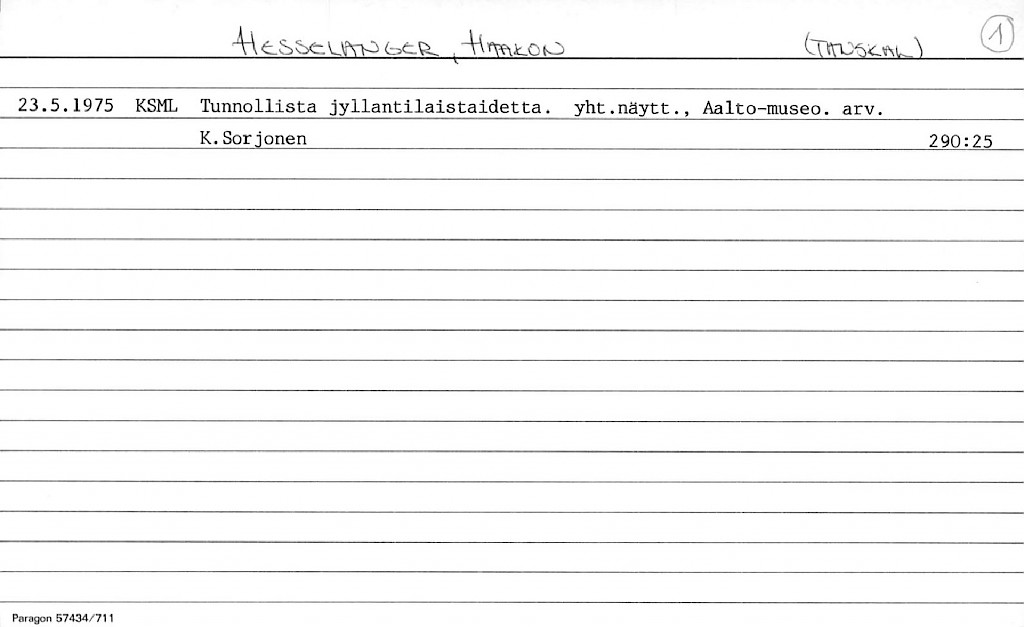 HESSELANGER, HAAKON (TANSKAL) 1
23.5.1975 KSML Tunnollista jyllantilaistaidetta. yht.näytt., Aalto-museo. arv.
K.Sorjonen 290:25
Paragon 57434/711